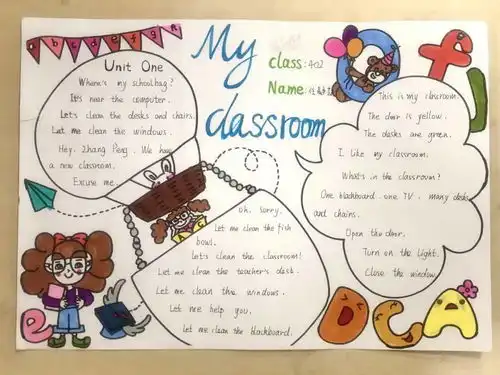 a b c d e f g
My
classroom
class: 402
Name:
Unit One
Where's my schoolbag?
It's near the computer.
Let's clean the desks and chairs.
Let me clean the windows.
Hey, Zhang Peng. We have
a new classroom.
Excuse me.
Oh, sorry.
Let me clean the fish
bowl.
Let's clean the classroom!
Let me clean the teacher's desk.
Let me clean the windows.
Let me help you.
Let me clean the blackboard.
This is my classroom.
The door is yellow.
The desks are green.
I like my classroom.
What's in the classroom?
One blackboard, one TV, many desks
and chairs.
Open the door.
Turn on the light.
Close the window.
f
J
e
D C A